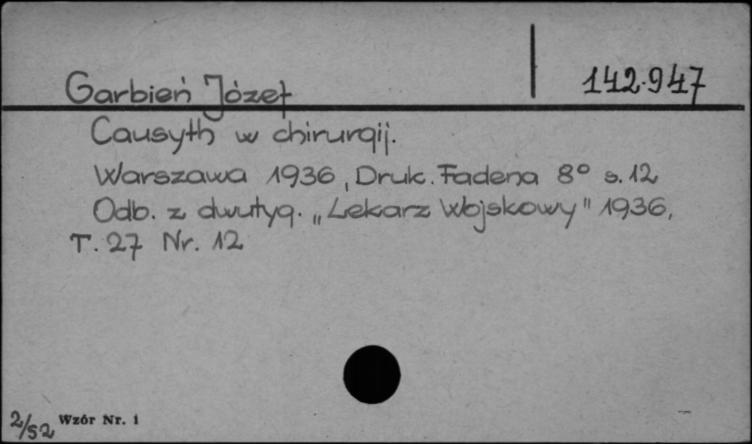 Garbień Józef 142.947
Causyth w chirurgij.
Warszawa 1936, Druk. Fadena 8° s. 12
Odb. z dwutyg. „Lekarz Wojskowy" 1936,
T. 27 Nr. 12
2/52 Wzór Nr. 1